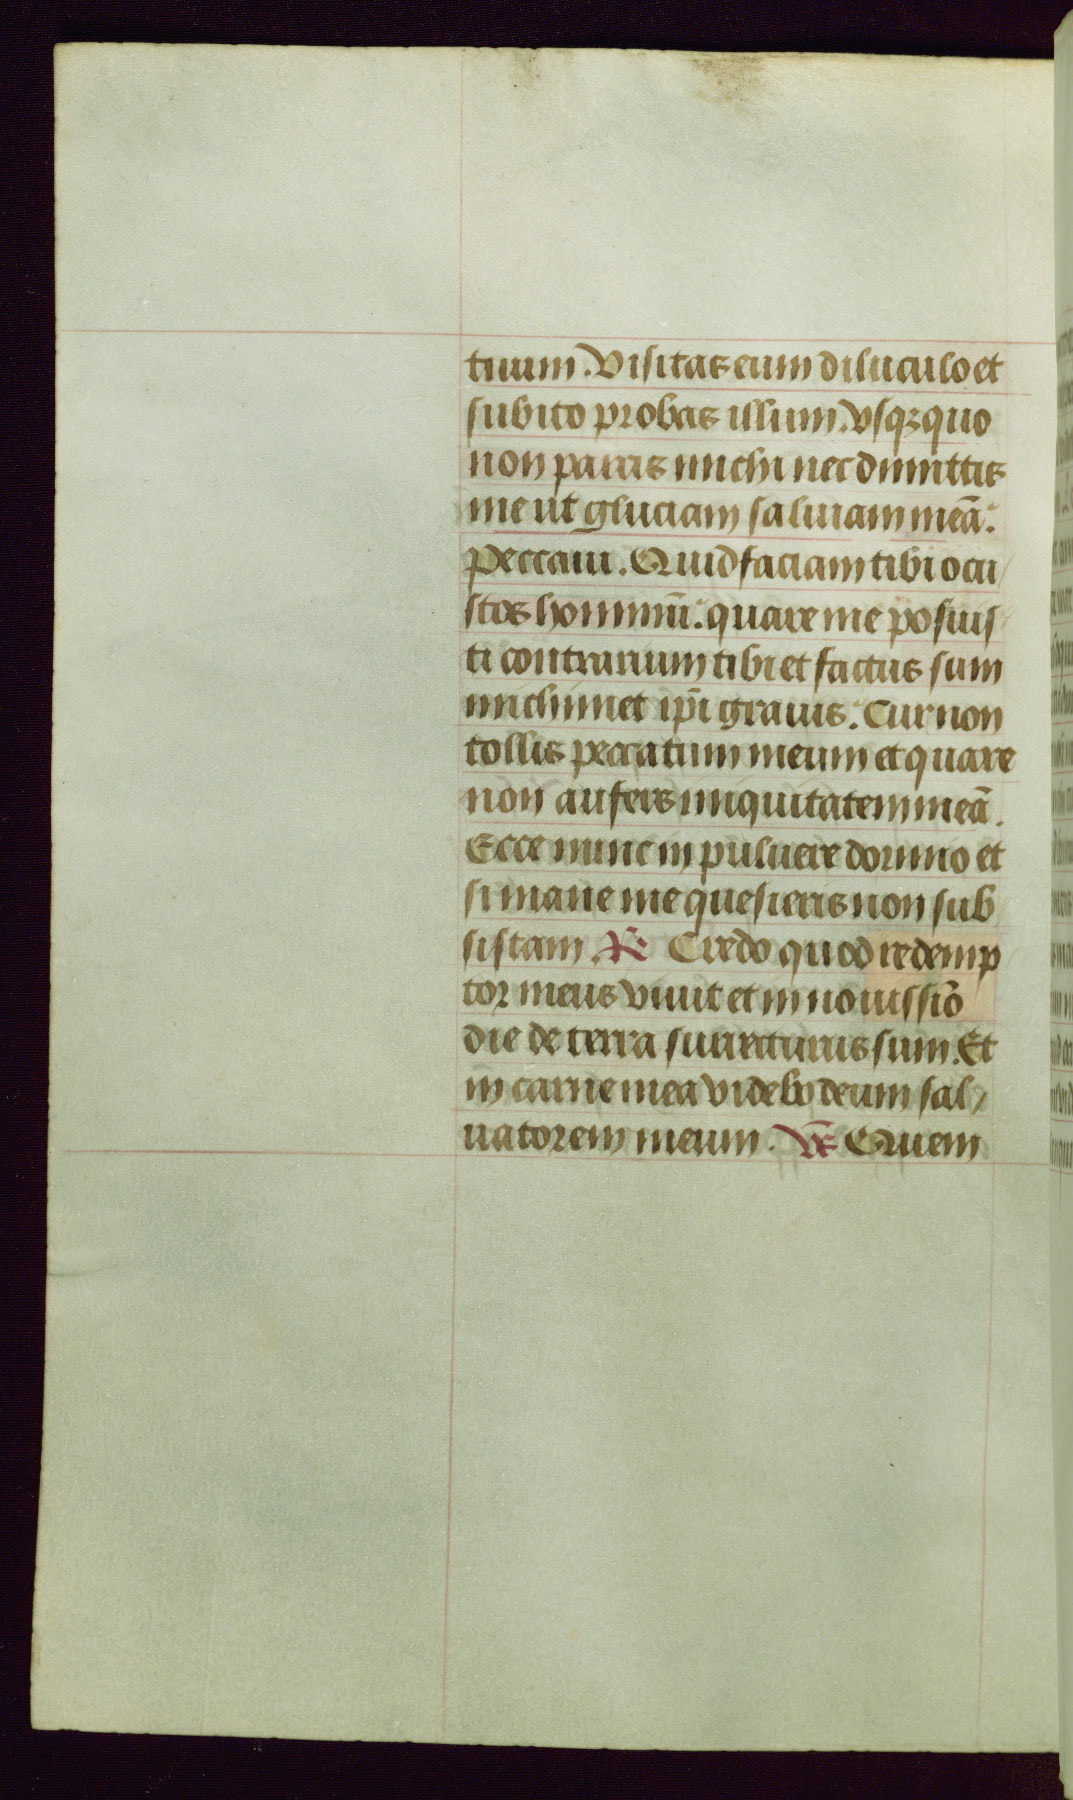 tuum. Visitas eum diluculo et
subito probas illum. Vsqꝫquo
non parcis michi nec dimittis
me ut gluciam saliuam meā.
Peccaui. Quid faciam tibi o cu
stos hominū. quare me posuis
ti contrarium tibi et factus sum
michimet ip̄i grauis. Cur non
tollis peccatum meum et quare
non aufers iniquitatem meā.
Ecce nunc in puluere dormio et
si mane me quesieris non sub
sistam. R. Credo quod redemp
tor meus viuit et in nouissīo
die de terra surrecturus sum. Et
in carne mea videbo deum sal/
uatorem meum. V̄s Quem